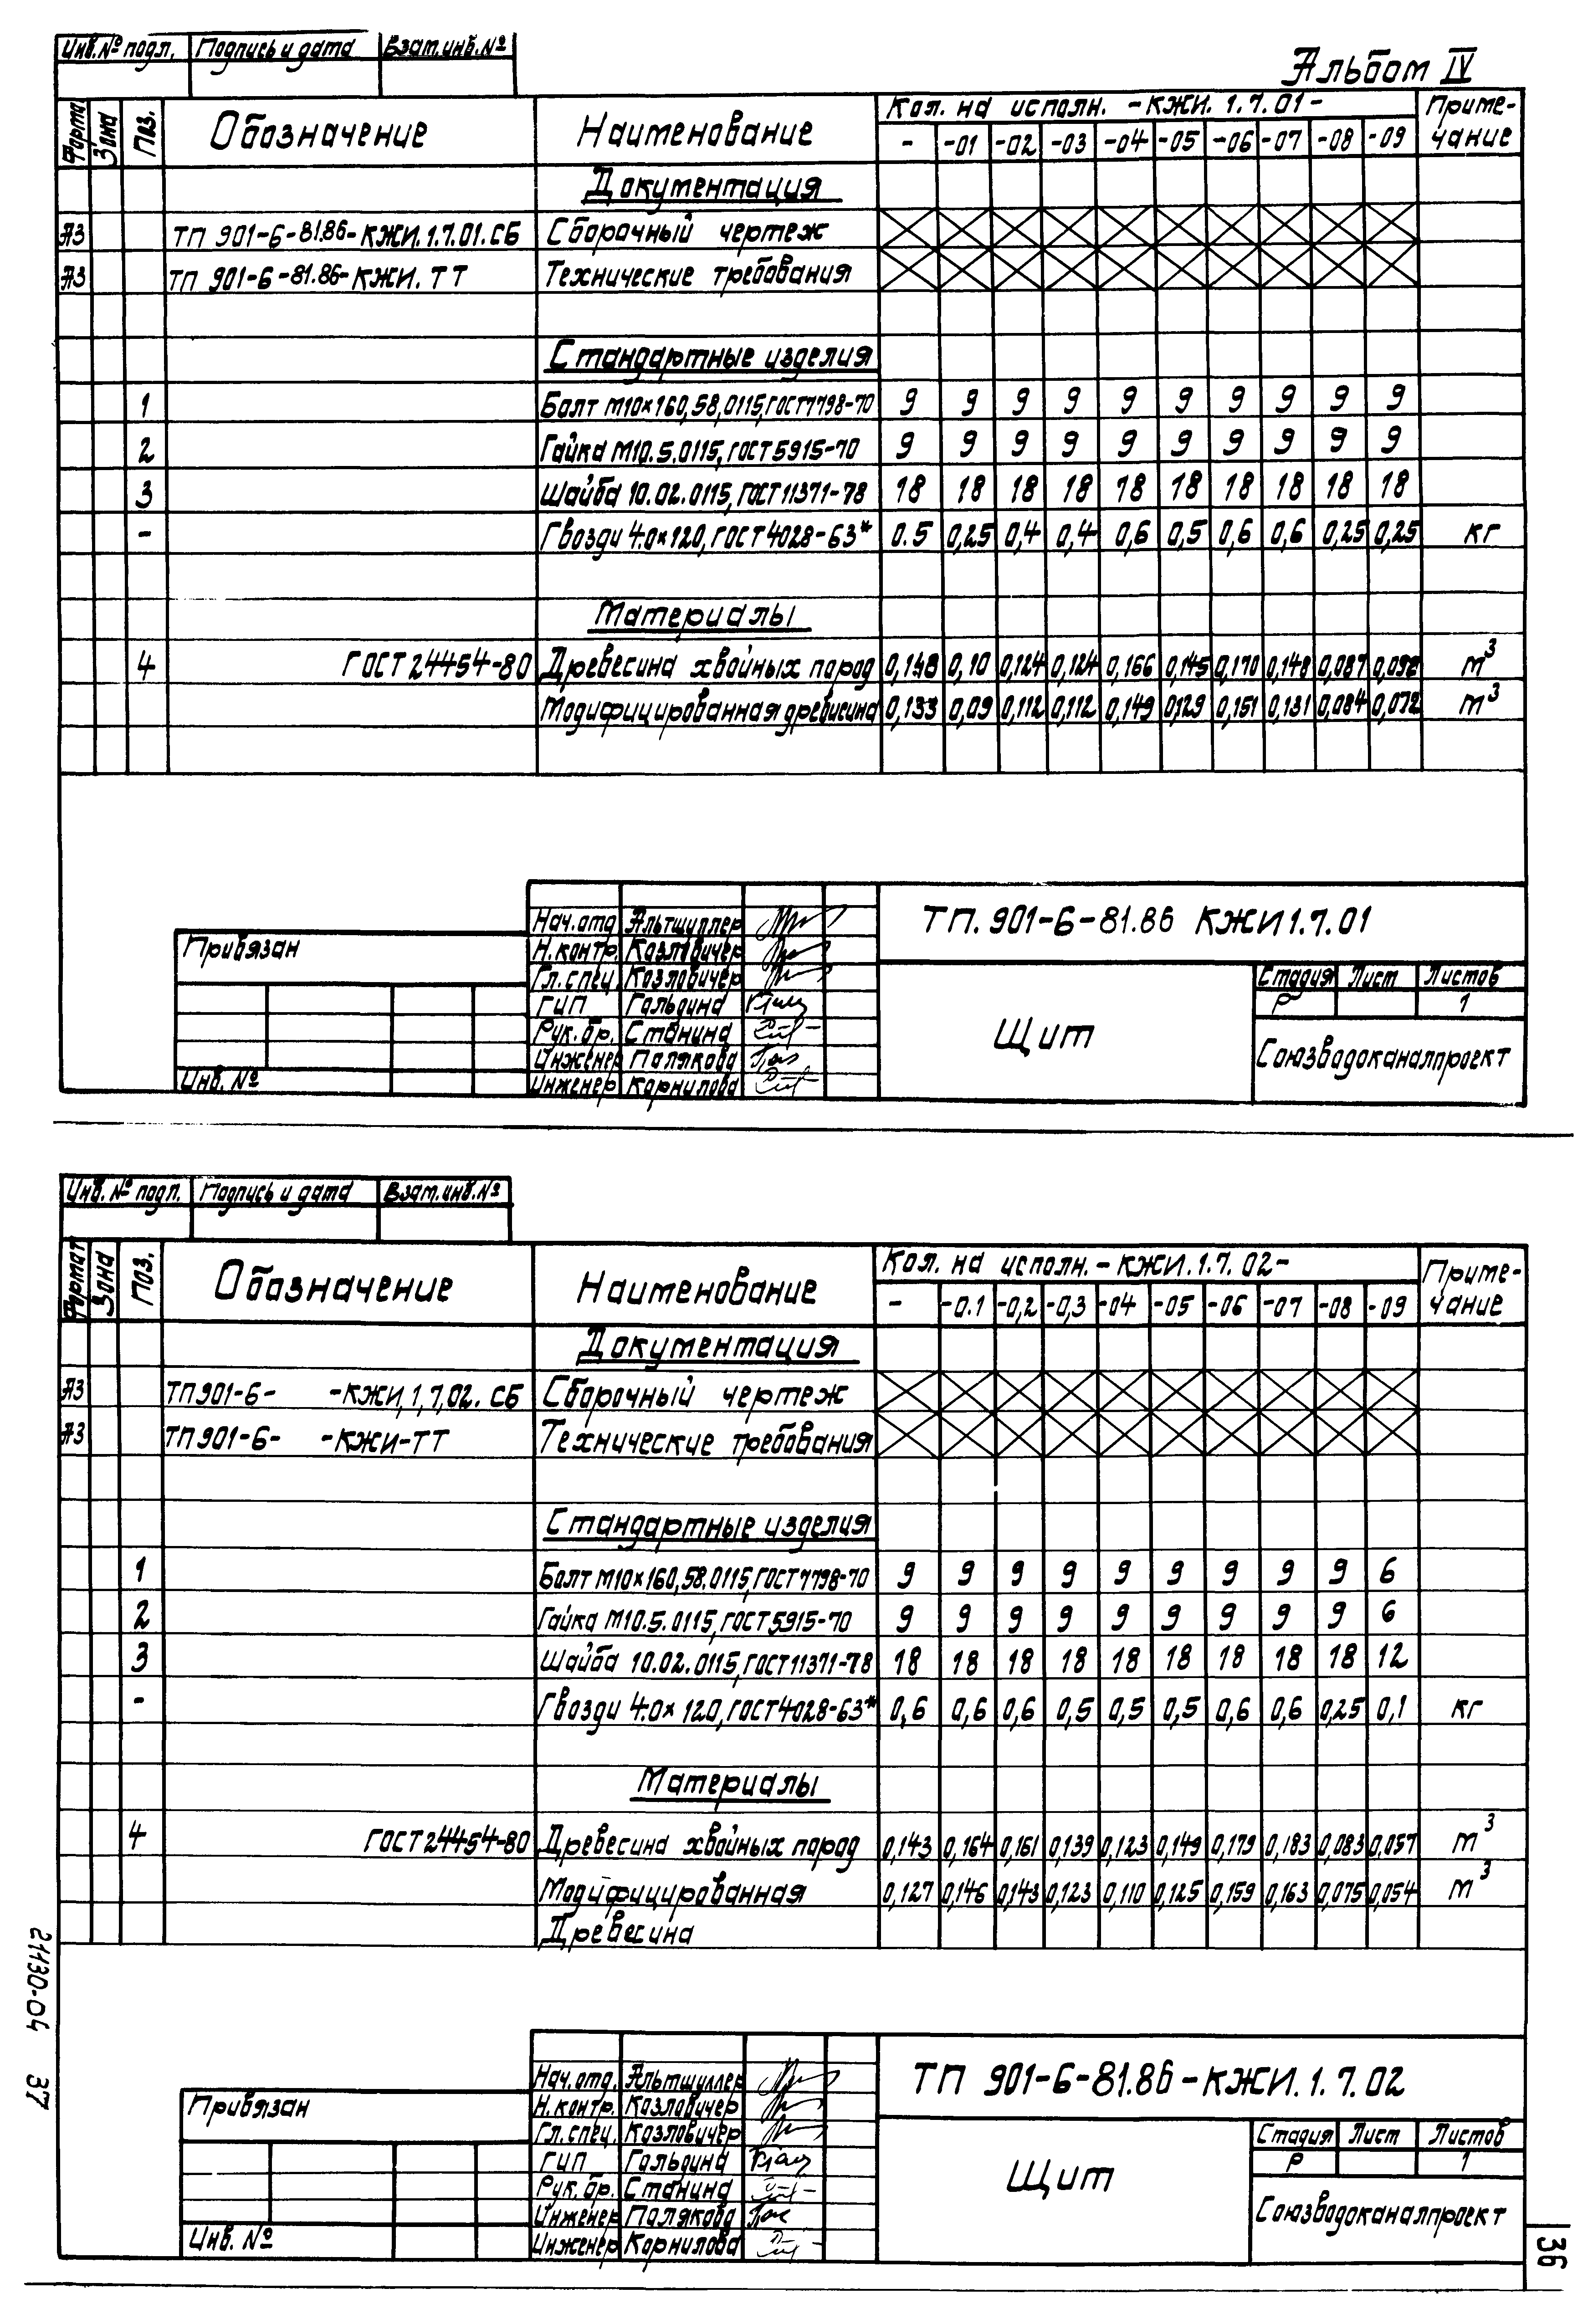 Инв.№ подл. Подпись и дата Взам.инв.№
Альбом IV
Формат Зона Поз. Обозначение Наименование Кол. на исполн. -КЖИ.1.7.01- Приме-чание
- -01 -02 -03 -04 -05 -06 -07 -08 -09
Документация
А3 ТП 901-6-81.86-КЖИ.1.7.01.СБ Сборочный чертеж
А3 ТП 901-6-81.86-КЖИ.ТТ Технические требования
Стандартные изделия
1 Болт М10×160,58,0115,ГОСТ7798-70 9 9 9 9 9 9 9 9 9 9
2 Гайка М10.5.0115,ГОСТ5915-70 9 9 9 9 9 9 9 9 9 9
3 Шайба 10.02.0115,ГОСТ11371-78 18 18 18 18 18 18 18 18 18 18
- Гвозди 4.0×120,ГОСТ4028-63* 0.5 0,25 0,4 0,4 0,6 0,5 0,6 0,6 0,25 0,25 кг
Материалы
4 ГОСТ24454-80 Древесина хвойных пород 0,148 0,10 0,124 0,124 0,166 0,145 0,170 0,148 0,087 м³
Модифицированная древисина 0,133 0,09 0,112 0,112 0,149 0,129 0,151 0,131 0,084 0,072 м³
Нач.отд. Альтшуллер
Н.контр. Козлавичер
Гл.спец. Козлавичер
ГИП Гольдина
Рук.бр. Станина
Инженер Полякова
Инженер Корнилова
Привязан
Инв. №
ТП.901-6-81.86 КЖИ1.7.01
Щит
Стадия Лист Листов
Р 1
Союзводоканалпроект
Инв.№ подл. Подпись и дата Взам.инв.№
Формат Зона Поз. Обозначение Наименование Кол. на исполн.-КЖИ.1.7.02- Приме-чание
- -0.1 -0,2 -0,3 -04 -05 -06 -07 -08 -09
Документация
А3 ТП901-6- -КЖИ,1,7,02.СБ Сборочный чертеж
А3 ТП901-6- -КЖИ-ТТ Технические требования
Стандартные изделия
1 Болт М10×160,58.0115,ГОСТ7798-70 9 9 9 9 9 9 9 9 9 6
2 Гайка М10.5.0115,ГОСТ5915-70 9 9 9 9 9 9 9 9 9 6
3 Шайба 10.02.0115,ГОСТ11371-78 18 18 18 18 18 18 18 18 18 12
- Гвозди 4.0×120,ГОСТ4028-63* 0,6 0,6 0,6 0,5 0,5 0,5 0,6 0,6 0,25 0,1 кг
Материалы
4 ГОСТ24454-80 Древесина хвойных пород 0,143 0,164 0,161 0,139 0,123 0,149 0,179 0,183 0,083 0,057 м³
Модифицированная 0,127 0,146 0,143 0,123 0,110 0,125 0,159 0,163 0,075 0,054 м³
Древесина
Нач.отд. Альтшуллер
Н.контр. Козлавичер
Гл.спец. Козлавичер
ГИП Гольдина
Рук.бр. Станина
Инженер Полякова
Инженер Корнилова
Привязан
Инв. №
ТП 901-6-81.86-КЖИ.1.7.02
Щит
Стадия Лист Листов
Р 1
Союзводоканалпроект
21130-04 37
36